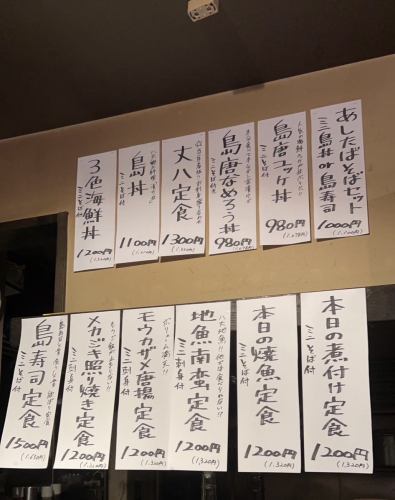 あしたばそばセット
ミニ島丼or島寿司
1000円
(1,100円)
島唐ユッケ丼
ミニそば付
980円
(1,078円)
島唐なめろう丼
ミニそば付
980円
(1,078円)
丈八定食
1300円
島丼
ミニそば付
1100円
3色海鮮丼
ミニそば付
1200円
(1,320円)
本日の煮付け定食
ミニそば付
1200円
(1,320円)
本日の焼魚定食
ミニそば付
1200円
(1,320円)
地魚南蛮定食
ミニ刺身付
1200円
(1,320円)
モウカザメ唐揚定食
ミニ刺身付
1200円
(1,320円)
メカジキ照り焼き定食
ミニ刺身付
1200円
(1,320円)
島寿司定食
ミニそば付
1500円
(1,650円)